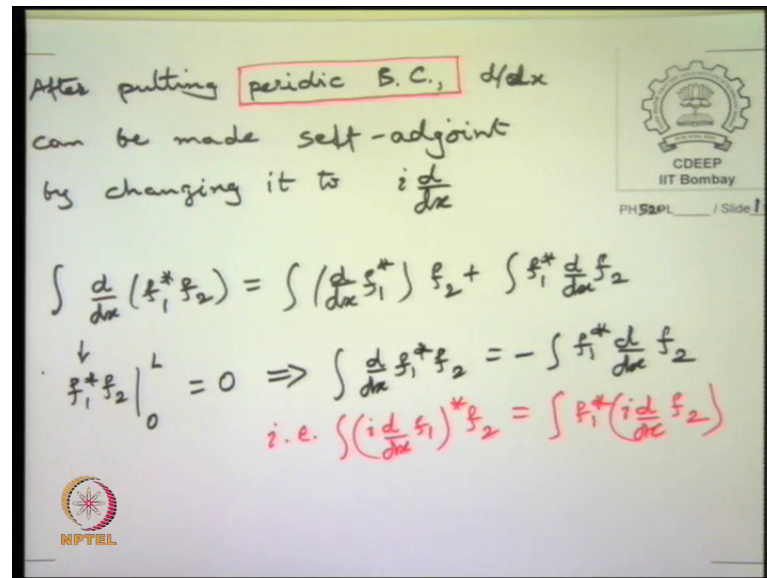 After putting peridic B.C., d/dx
can be made self-adjoint
by changing it to i d/dx
CDEEP
IIT Bombay
PH520L____ / Slide 1
∫ d/dx (f₁* f₂) = ∫ (d/dx f₁*) f₂ + ∫ f₁* d/dx f₂
↓
f₁* f₂ |₀ᴸ = 0 ⇒ ∫ d/dx f₁* f₂ = − ∫ f₁* d/dx f₂
i.e. ∫ (i d/dx f₁)* f₂ = ∫ f₁* (i d/dx f₂)
NPTEL